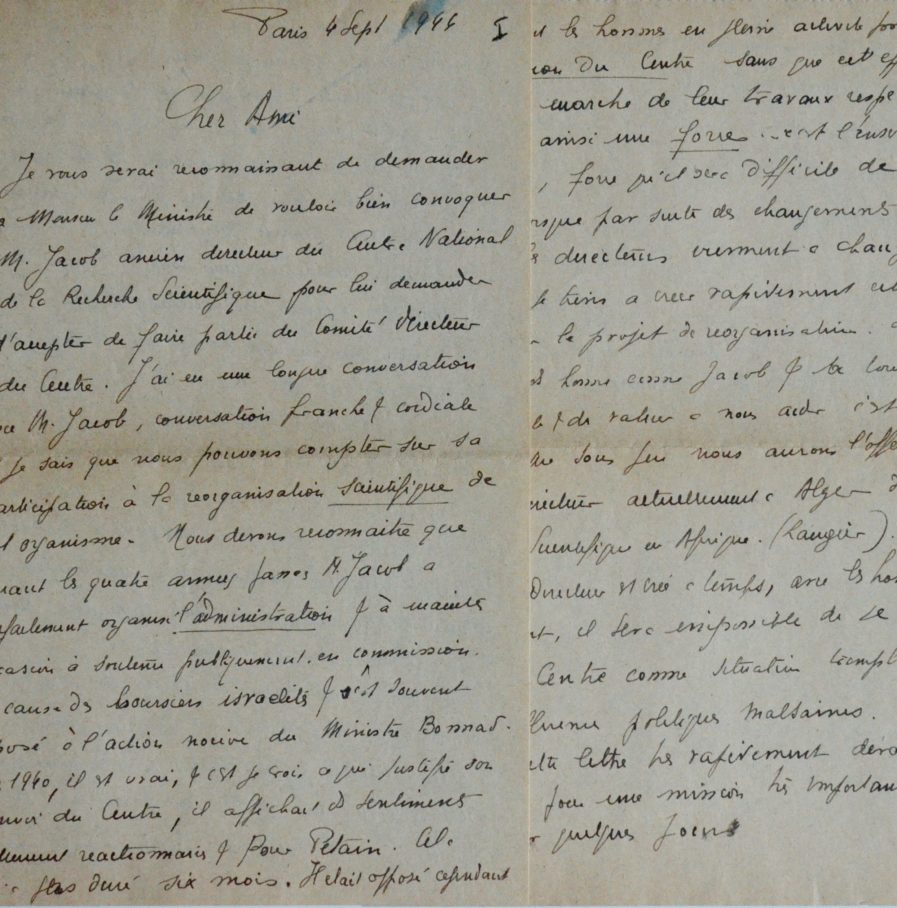 Paris 4 Sept 1944
I
Cher Ami
Je vous serai reconnaissant de demander
a Monsieur le Ministre de vouloir bien convoquer
M. Jacob ancien directeur du Centre National
de la Recherche Scientifique pour lui demander
d'accepter de faire partie du Comité Directeur
du Centre. J'ai eu une longue conversation
M. Jacob, conversation franche & cordiale
je sais que nous pouvons compter sur sa
participation à la reorganisation scientifique de
organisme. Nous devons reconnaitre que
les quatre années M. Jacob a
organisé l'administration & à maintes
à soutenu publiquement en commission
cause des boursiers israelites & s'est souvent
posé à l'action nocive du Ministre Bonnard.
1940, il est vrai, & c'est je crois ce qui justifie son
du Centre, il affichait des sentiments
reactionnaires & pour Pétain. Cela
pas duré six mois. Il etait opposé cependant
et les hommes en pleine activité
du Centre sans que cet
marche de leur travaux
ainsi une force c'est
, force qu'il sera difficile de
par suite des changements
directeurs viennent a
tiens a creer rapidement
le projet de reorganisation.
homme comme Jacob &
& de valeur a nous aider c'est
sous peu nous aurons
directeur actuellement a Alger
Scientifique en Afrique. (Laugier).
Directeur a temps, avec les
, il sera impossible de se
Centre comme situation
politiques malsaines.
lettre très rapidement
pour une mission très
quelques jours